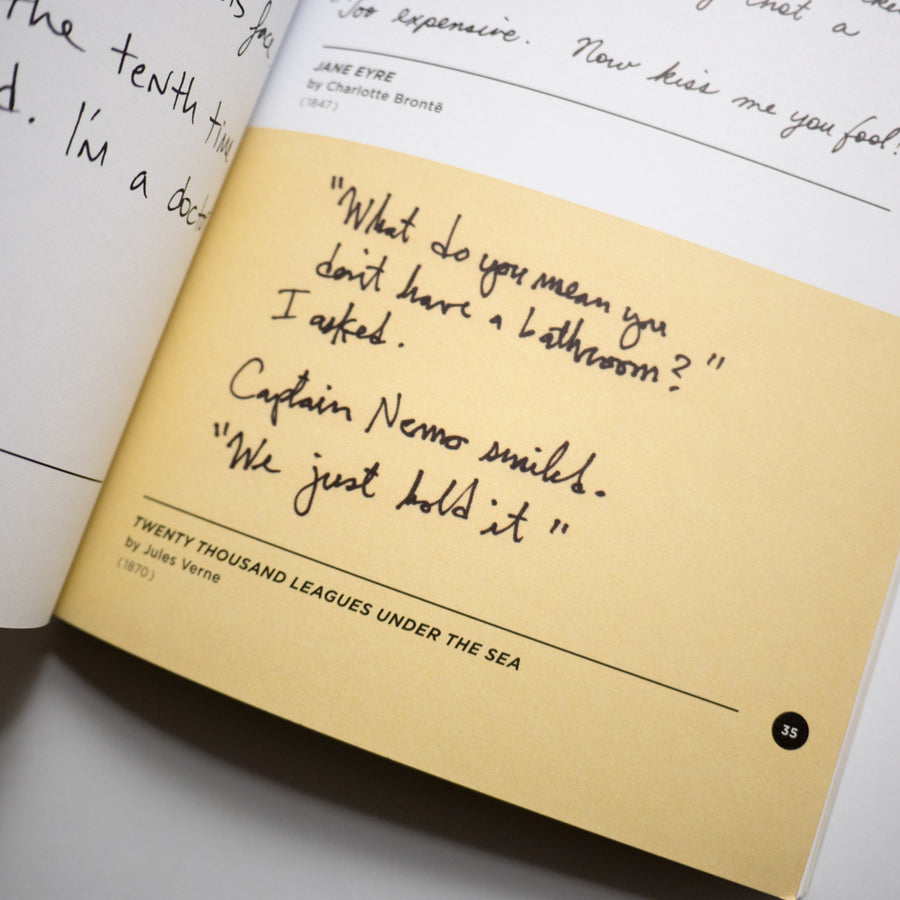 the
tenth time
d. I'm a
that a
Too expensive. Now kiss me you fool!
JANE EYRE
by Charlotte Brontë
(1847)
"What do you mean you
don't have a bathroom?"
I asked.
Captain Nemo smiled.
"We just hold it"
TWENTY THOUSAND LEAGUES UNDER THE SEA
by Jules Verne
(1870)
35